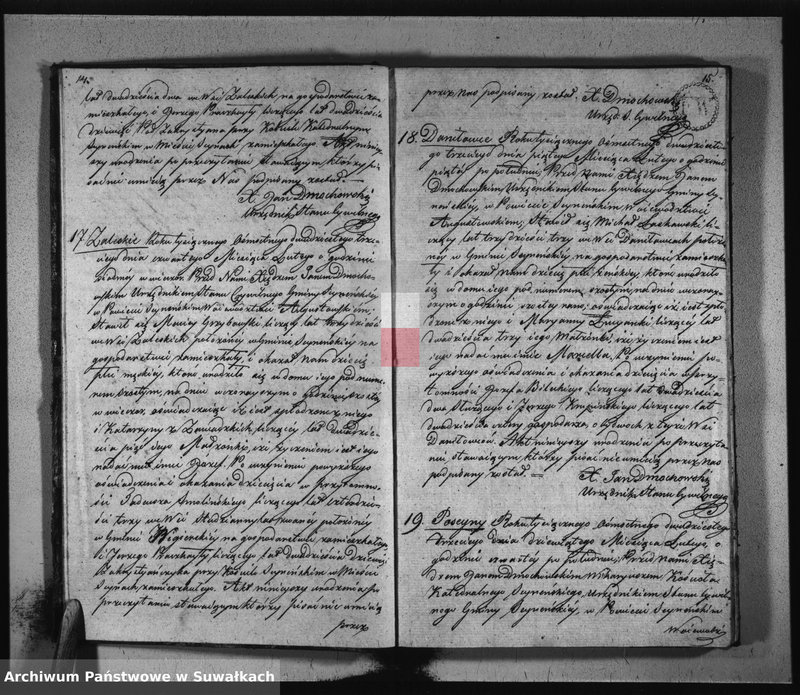 14.
lat dwadzieścia dwa we Wsi Zaleskich, na gospodarstwie za
mieszkałego, i Jerzego Warakszy liczącego lat dwadzieścia
Seynenskim w Mieście Seynach zamieszkałego. Akt niniey
szy urodzenia po przeczytaniu stawaiącym, którzy pi
sać nie umieią przez Nas podpisany został.
X. Jan Dmochowski
Urzędnik Stanu Cywilnego
17. Zaleskie Roku tysiącznego Osmsetnego dwudziestego trze
ciego dnia czwartego Miesiąca Lutego o godzinie
siódmey w wieczor. Przed Nami Xiędzem Janem Dmocho
wskim Urzędnikiem Stanu Cywilnego Gminy Seyneńskiey
w Powiecie Seyneńskim w Woiewodztwie Augustowskim,
Stawił się Maciey liczący lat trzydzieści
we Wsi Zaleskich położoney w Gminie Seyneńskiey na
gospodarstwie zamieszkały, i okazał nam dziecię
płci męskiey, które urodziło się w domu iego pod nume
rem szostym, na dniu wczorayszym o godzinie szostey
w wieczor, oświadczaiąc iż iest spłodzone z niego
i Katarzyny z Zawadzkich liczącey lat dwadzie
ścia pięć iego Małżonki, iż życzeniem iest iego
nadać mu imie Jozef. Po uczynieniu powyższego
oświadczenia i okazania dziecięcia w przytomno
ści Jadwora Smolińskiego liczącego lat czterdzie
ści trzy we Wsi położoney
w Gminie na gospodarstwie zamieszkałego
i Jerzego Warakszy liczącego lat dwadzieścia dziewięć
Zakrystyanczyka przy Kościele Seyneńskim w Mieście
Seynach zamieszkałego. Akt ninieyszy urodzenia po
przeczytaniu stawaiącym którzy pisać nie umieią
przez
15.
przez nas podpisany został. X. Dmochowski
Urzęd. S. Cywilnego
18. Daniłowce Roku tysiącznego Osmsetnego dwudzieste
go trzeciego dnia piątego Miesiąca Lutego o godzinie
piątey po południu, Przed Nami Xiędzem Janem
Dmochowskim Urzędnikiem Stanu Cywilnego Gminy Sey
neńskiey, w Powiecie Seyneńskim w Woiewodztwie
Augustowskim, Stawił się Michał Laskowski li
czący lat trzydzieści trzy we Wsi Daniłowcach położo
ney w Gminie Seyneńskiey, na gospodarstwie zamieszka
ły i okazał nam dziecię płci żeńskiey, które urodziło
się w domu iego pod numerem szostym, na dniu wczoray
szym o godzinie oświadczaiąc iż iest spło
dzone z niego i Maryanny liczącey lat
dwadzieścia trzy iego Małżonki, iż życzeniem iest
iego nadać mu imie Maryella. Po uczynieniu po
wyższego oświadczenia i okazania dziecięcia w przy
tomności Jozefa Bileckiego liczącego lat dwadzieścia
dwa i Jerzego liczącego lat
dwadzieścia cztery gospodarzy obydwoch z teyże Wsi
Daniłowców. Akt ninieyszy urodzenia po przeczyta
niu stawaiącym, którzy pisać nie umieią przez nas
podpisany został. X. Jan Dmochowski
Urzędnik Stanu Cywilnego
19 Posejny Roku tysiącznego Osmsetnego dwudziestego
trzeciego dnia dziewiątego Miesiąca Lutego o
godzinie czwartey po południu, Przed Nami Xię
dzem Janem Dmochowskim Wikaryuszem Kościoła
Katedralnego Seyneńskiego, Urzędnikiem Stanu Cywil
nego Gminy Seyneńskiey, w Powiecie Seyneńskim
Woiewodz
Archiwum Państwowe w Suwałkach